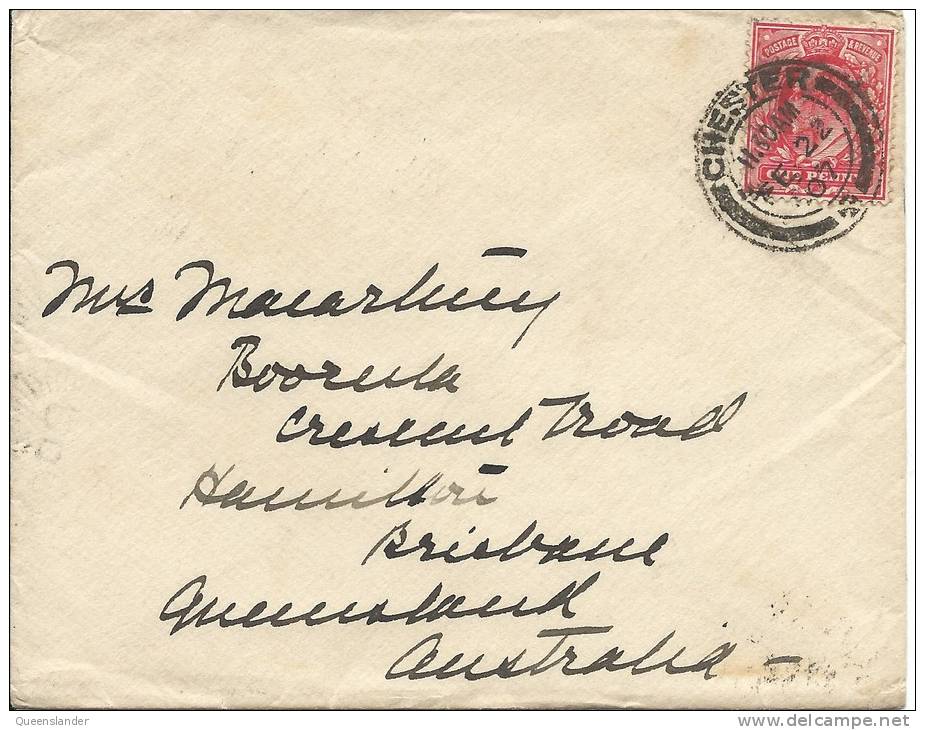 POSTAGE & REVENUE
CHESTER
11.00AM
FE 22
07
PENNY
Mrs Macartney
Booresla
Crescent Road
Hamilton
Brisbane
Queensland
Australia –
Queenslander
delcampe.net